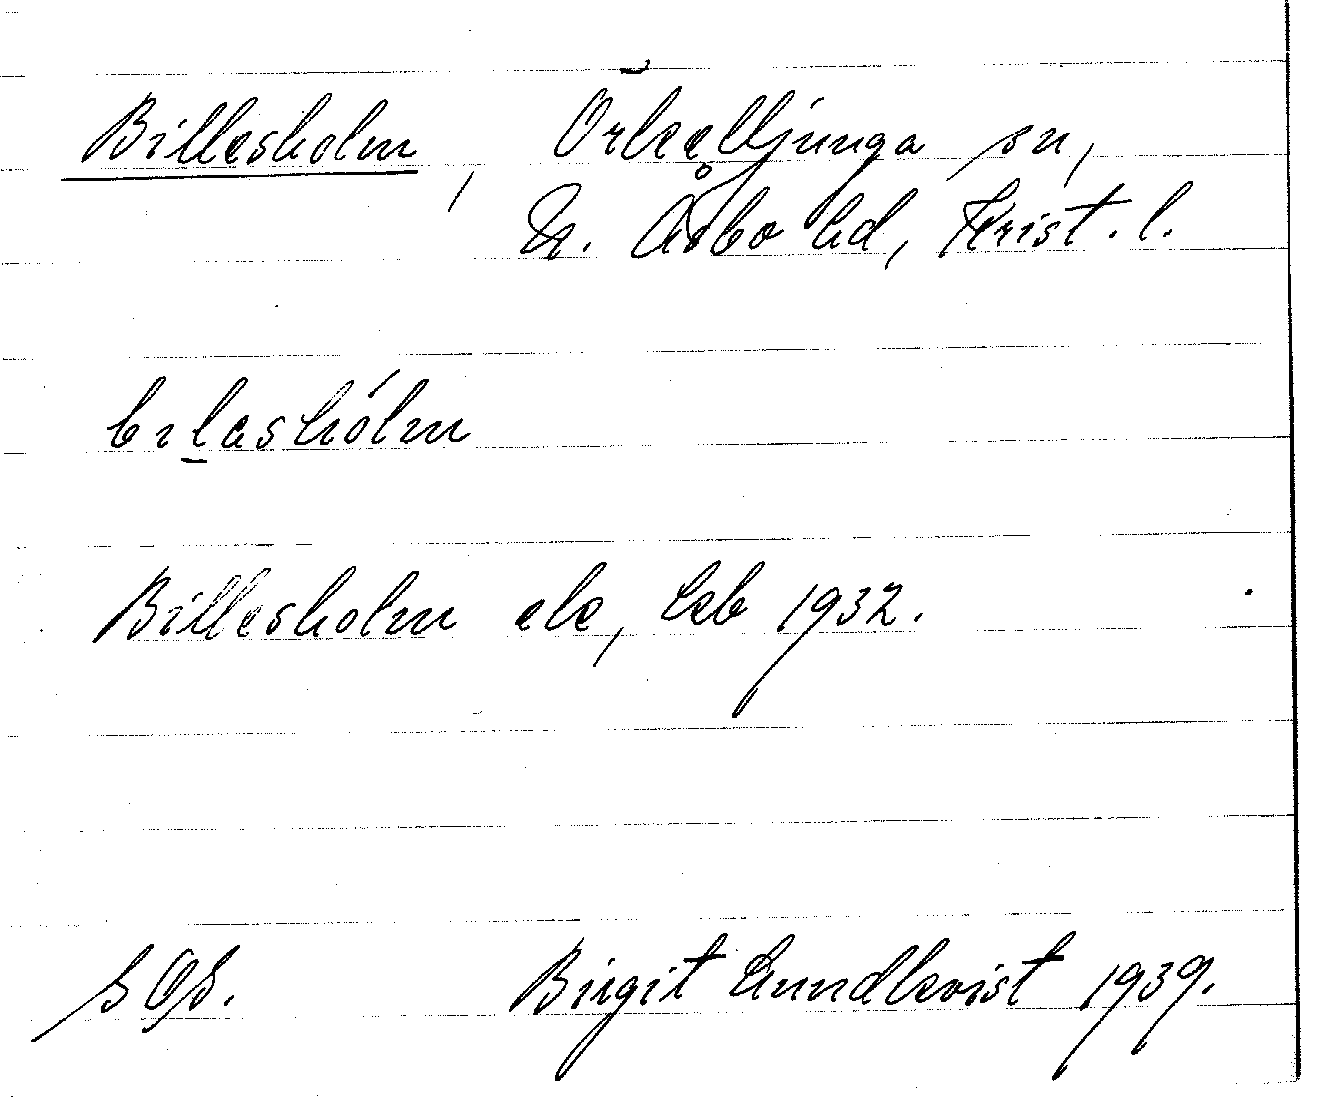 Billesholm, Örkelljunga sn,
N. Åsbo hd, Krist. l.
bɪlashólm
Billesholm ek, Ekb 1932.
Birgit Lundkvist 1939.